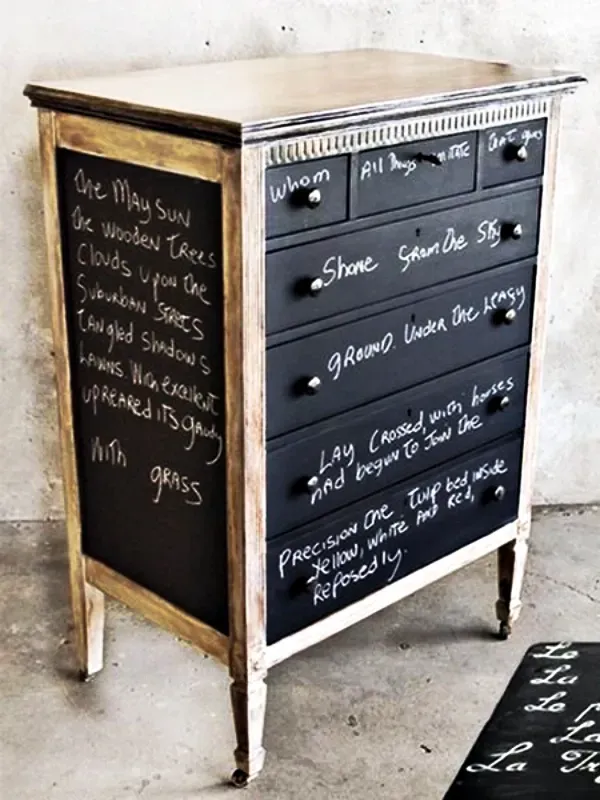 The May Sun
The Wooden Trees
Clouds upon the
Suburban Streets
Tangled Shadows
Lawns. With excellent
upreared its gaudy
with grass
Whom
All Things imitate
Shone from the Sky
ground. Under the leafy
Lay Crossed, with horses
had begun to Join the
Precision the Tulip bed inside
Yellow, White and Red,
Reposedly.
Le
La
Le
La
La